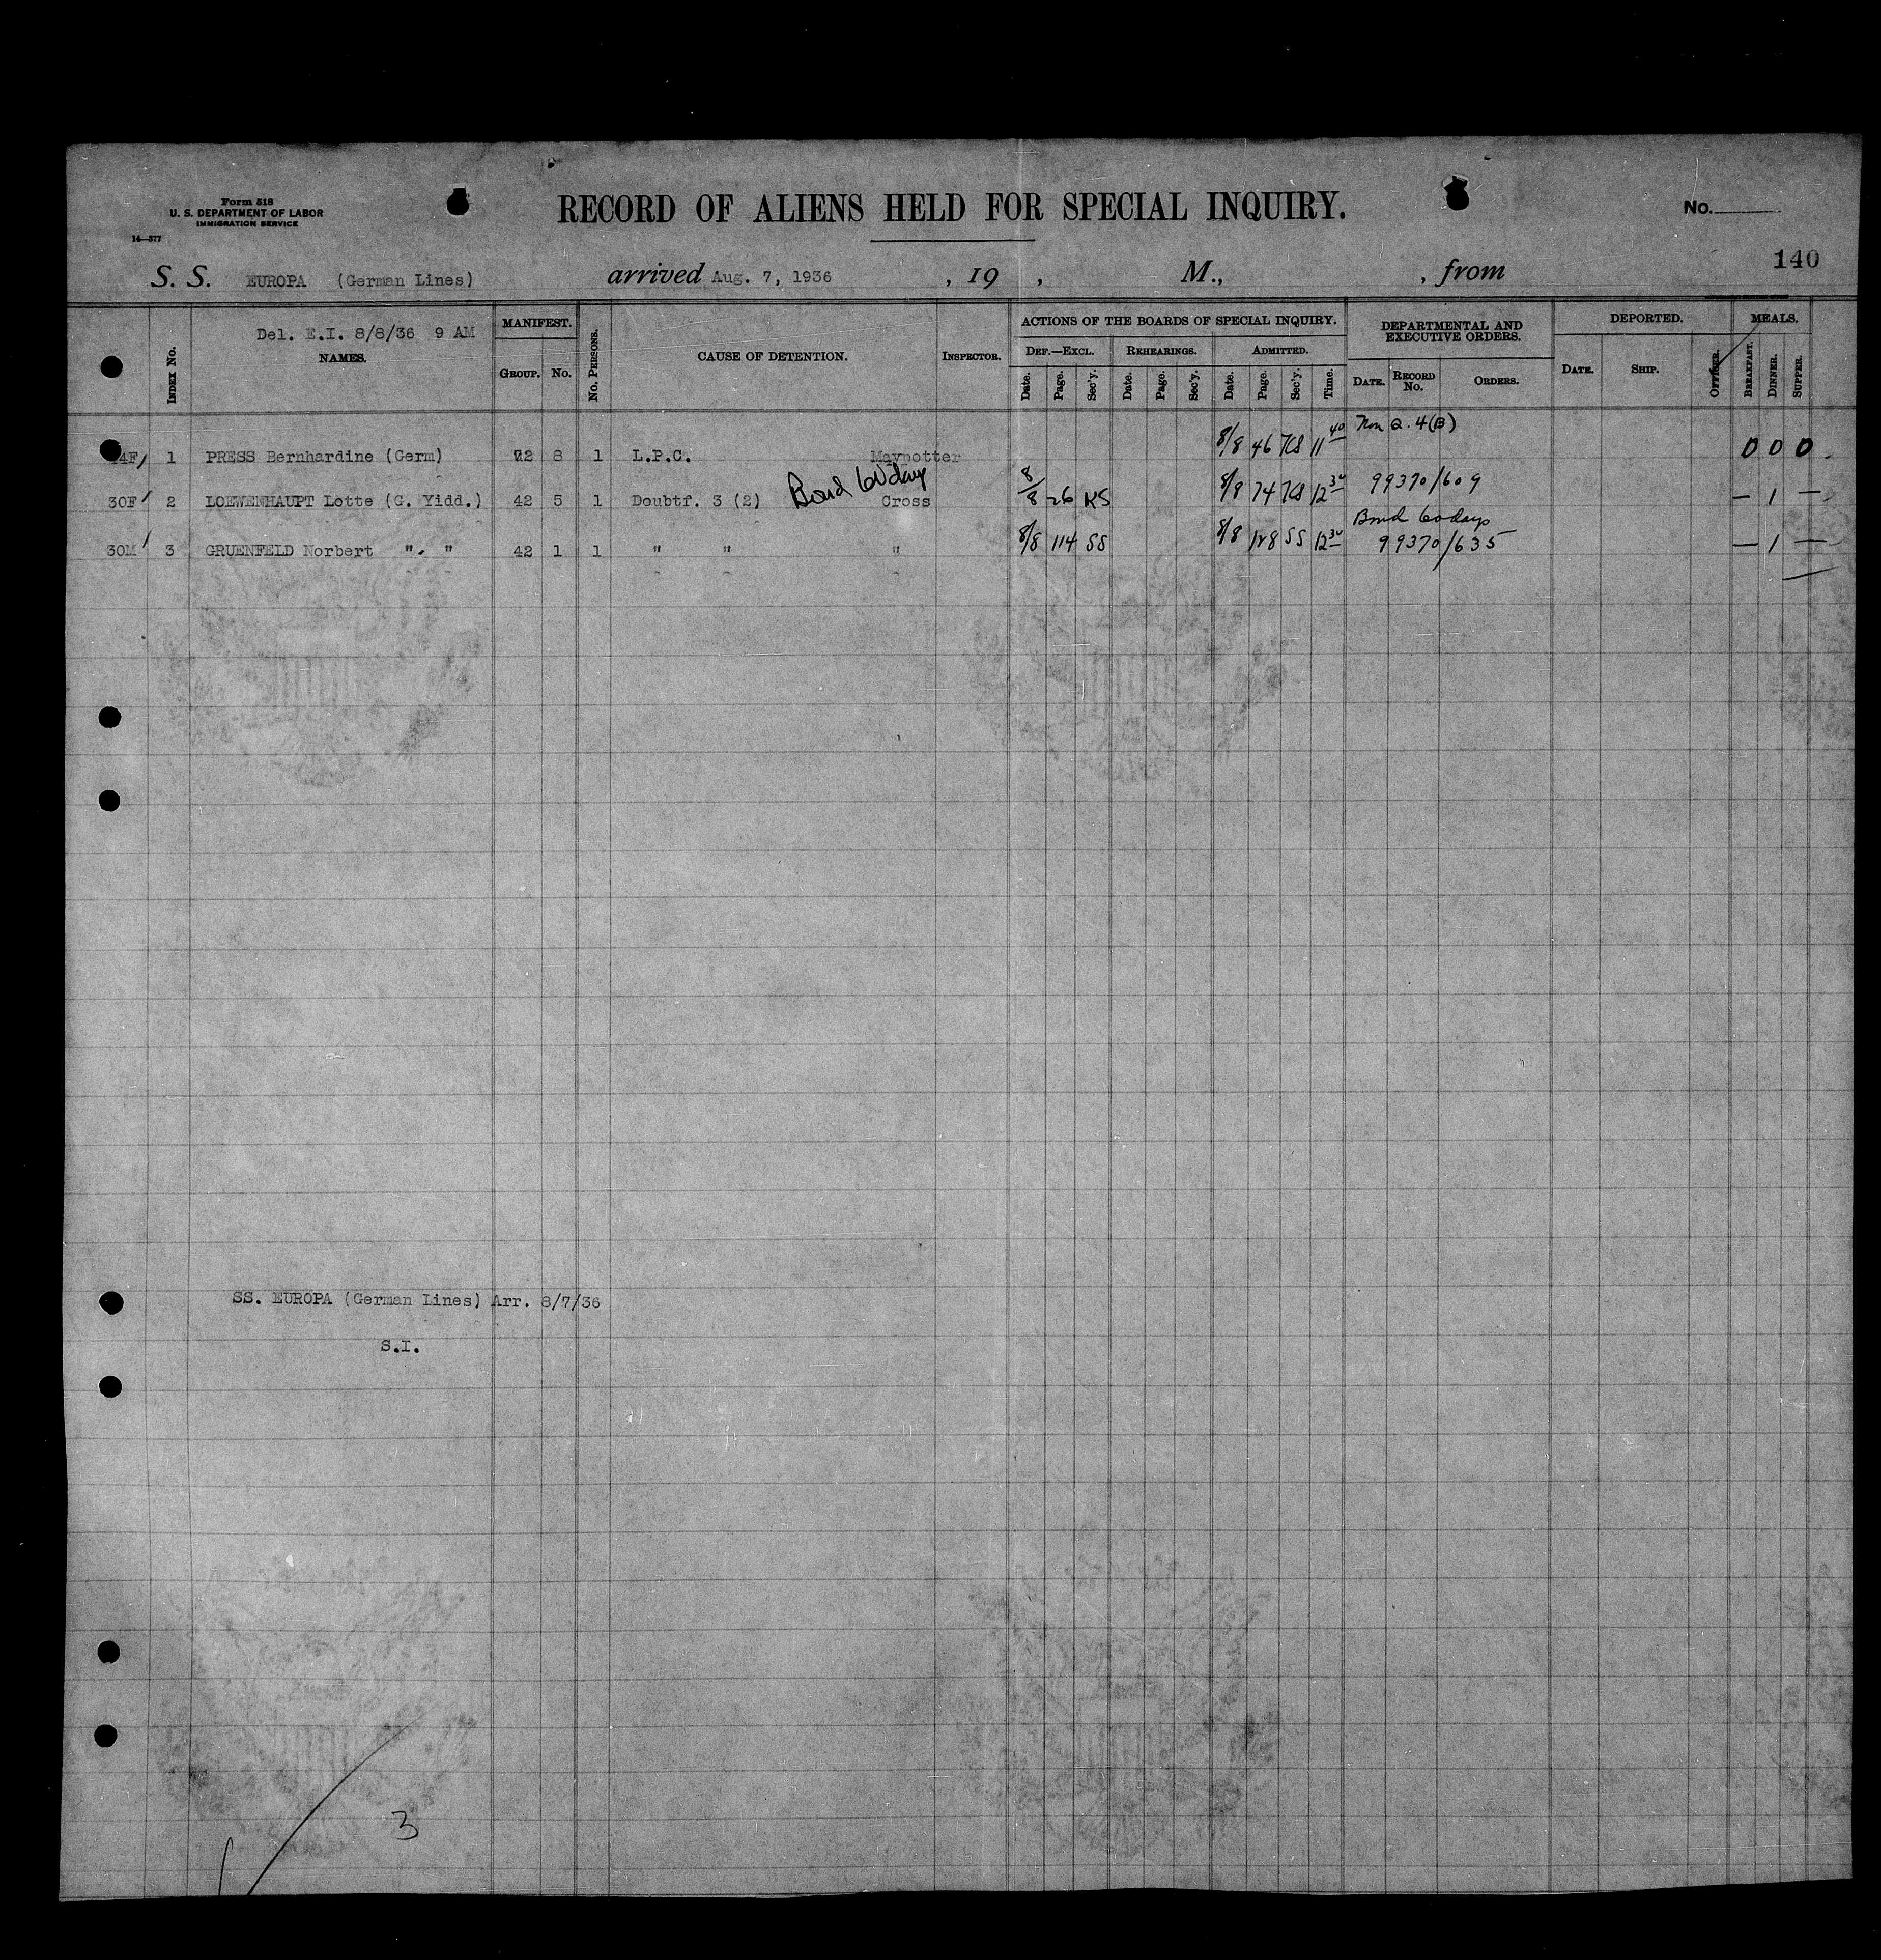 Form 518
U. S. DEPARTMENT OF LABOR
IMMIGRATION SERVICE
14—577
RECORD OF ALIENS HELD FOR SPECIAL INQUIRY.
No.
140
S. S. EUROPA (German Lines) arrived Aug. 7, 1936 , 19 , M., , from
Del. E.I. 8/8/36 9 AM
INDEX No. NAMES. MANIFEST. GROUP. No. No. PERSONS. CAUSE OF DETENTION. INSPECTOR.
ACTIONS OF THE BOARDS OF SPECIAL INQUIRY.
DEF.—EXCL. REHEARINGS. ADMITTED.
Date. Page. Sec'y. Date. Page. Sec'y. Date. Page. Sec'y. Time.
DEPARTMENTAL AND EXECUTIVE ORDERS.
DATE. RECORD No. ORDERS.
DEPORTED.
DATE. SHIP. OFFICER.
MEALS.
BREAKFAST. DINNER. SUPPER.
4F 1 PRESS Bernhardine (Germ) 72 8 1 L.P.C. Maypotter 8/8 46 11 40 Non Q. 4(B) 0 0 0
30F 2 LOEWENHAUPT Lotte (G. Yidd.) 42 5 1 Doubtf. 3 (2) Bond 60 days Cross 8/8 26 KS 8/8 74 12 30 99370/609 — 1 —
30M 3 GRUENFELD Norbert " " 42 1 1 " " " 8/8 114 SS 8/8 128 SS 12 30 Bond 60 days 99370/635 — 1 —
SS. EUROPA (German Lines) Arr. 8/7/36
S.I.
3